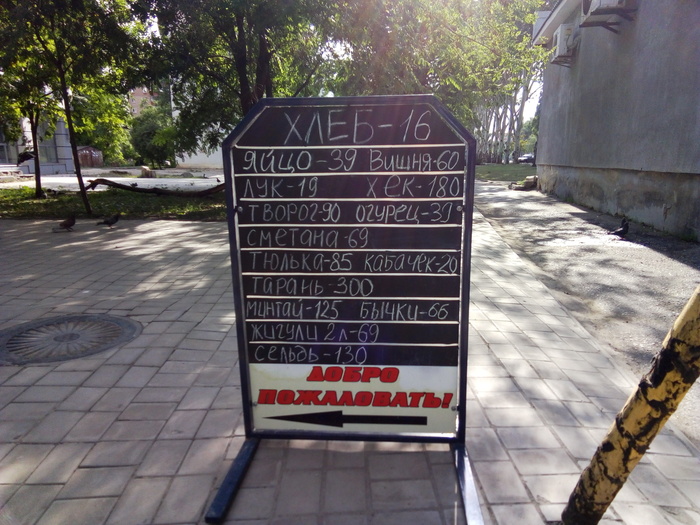 ХЛЕБ-16
ЯЙЦО-39 ВИШНЯ-60
ЛУК-19 ХЕК-180
ТВОРОГ-90 ОГУРЕЦ-39
СМЕТАНА-69
ТЮЛЬКА-85 КАБАЧЕК-20
ТАРАНЬ-300
МИНТАЙ-125 БЫЧКИ-66
ЖИГУЛИ 2Л-69
СЕЛЬДЬ-130
ДОБРО
ПОЖАЛОВАТЬ!